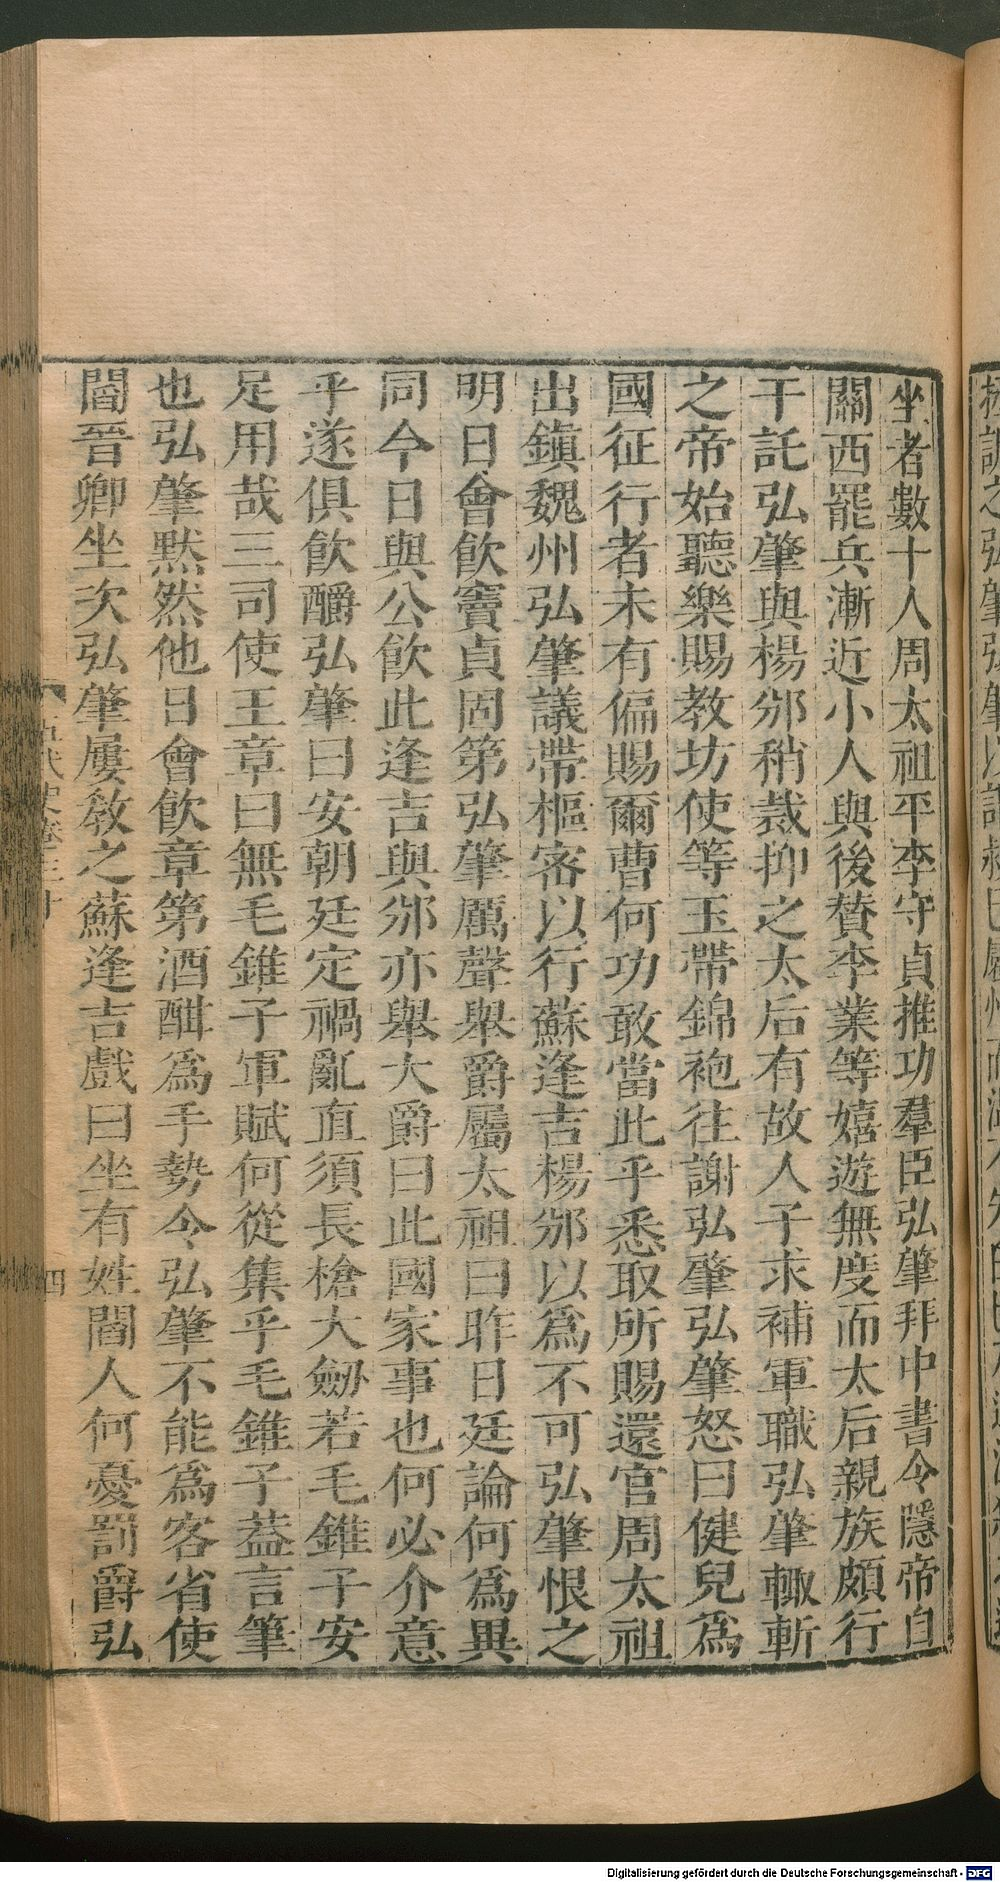 坐者數十人周太祖平李守貞推功羣臣弘肇拜中書令隱帝自
關西罷兵漸近小人與後贊李業等嬉遊無度而太后親族頗行
干託弘肇與楊邠稍裁抑之太后有故人子求補軍職弘肇輙斬
之帝始聽樂賜教坊使等玉帶錦袍往謝弘肇弘肇怒曰健兒爲
國征行者未有偏賜爾曹何功敢當此乎悉取所賜還官周太祖
出鎮魏州弘肇議帶樞密以行蘇逢吉楊邠以爲不可弘肇恨之
明日會飲竇貞固第弘肇厲聲舉爵屬太祖曰昨日廷論何爲異
同今日與公飲此逢吉與邠亦舉大爵曰此國家事也何必介意
乎遂俱飲釂弘肇曰安朝廷定禍亂直須長槍大劒若毛錐子安
足用哉三司使王章曰無毛錐子軍賦何從集乎毛錐子蓋言筆
也弘肇默然他日會飲章第酒酣爲手勢令弘肇不能爲客省使
閻晉卿坐次弘肇屢敎之蘇逢吉戲曰坐有姓閻人何憂罰爵弘
五代史卷三十
四
Digitalisierung gefördert durch die Deutsche Forschungsgemeinschaft - DFG